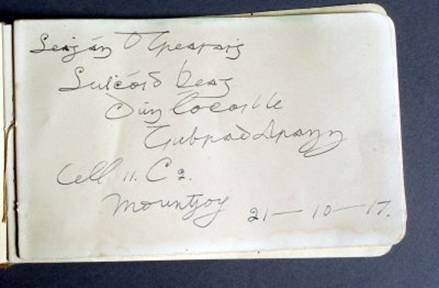 Seaján Ó Treasaig
Sulcóid beag
Dún
Tiubrad Arann
Cell 11. C2.
Mountjoy 21-10-17.